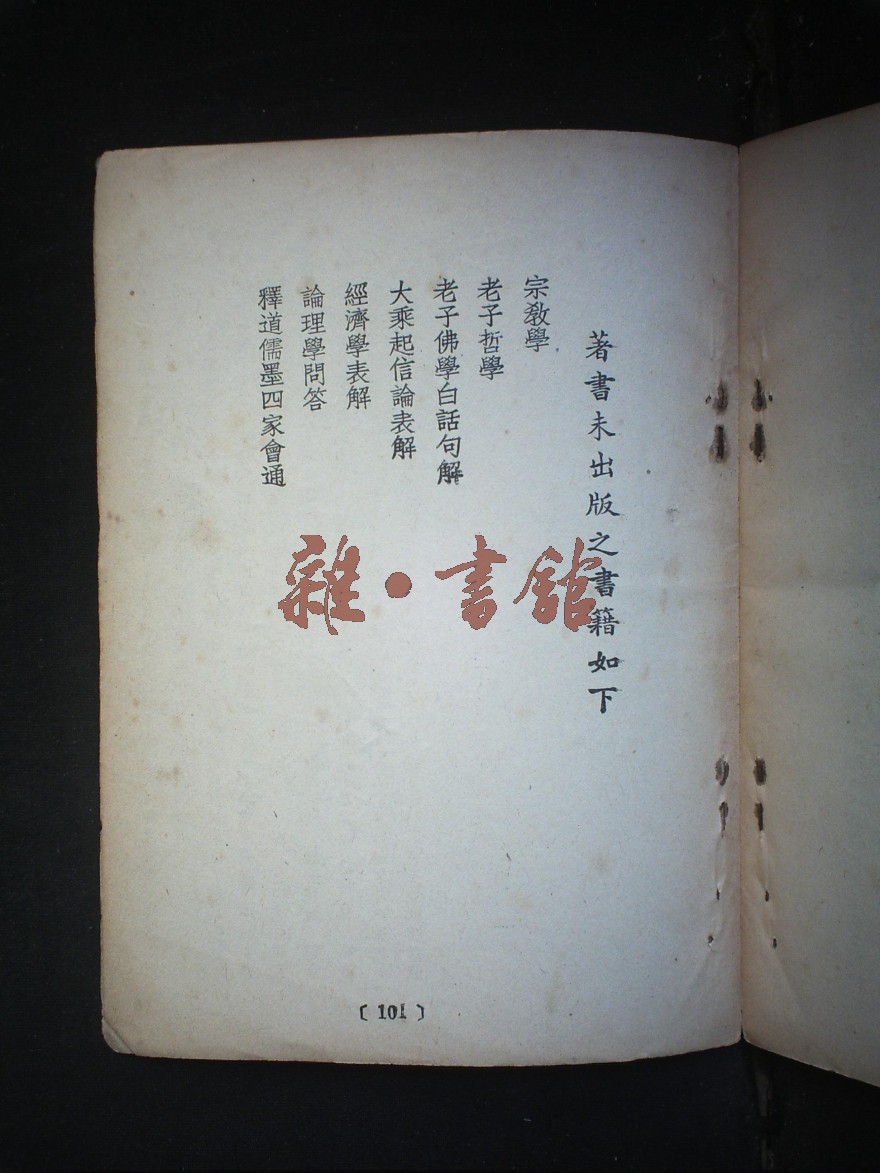 著書未出版之書籍如下
宗教學
老子哲學
老子佛學白話句解
大乘起信論表解
經濟學表解
論理學問答
釋道儒墨四家會通
雜·書館
〔101〕